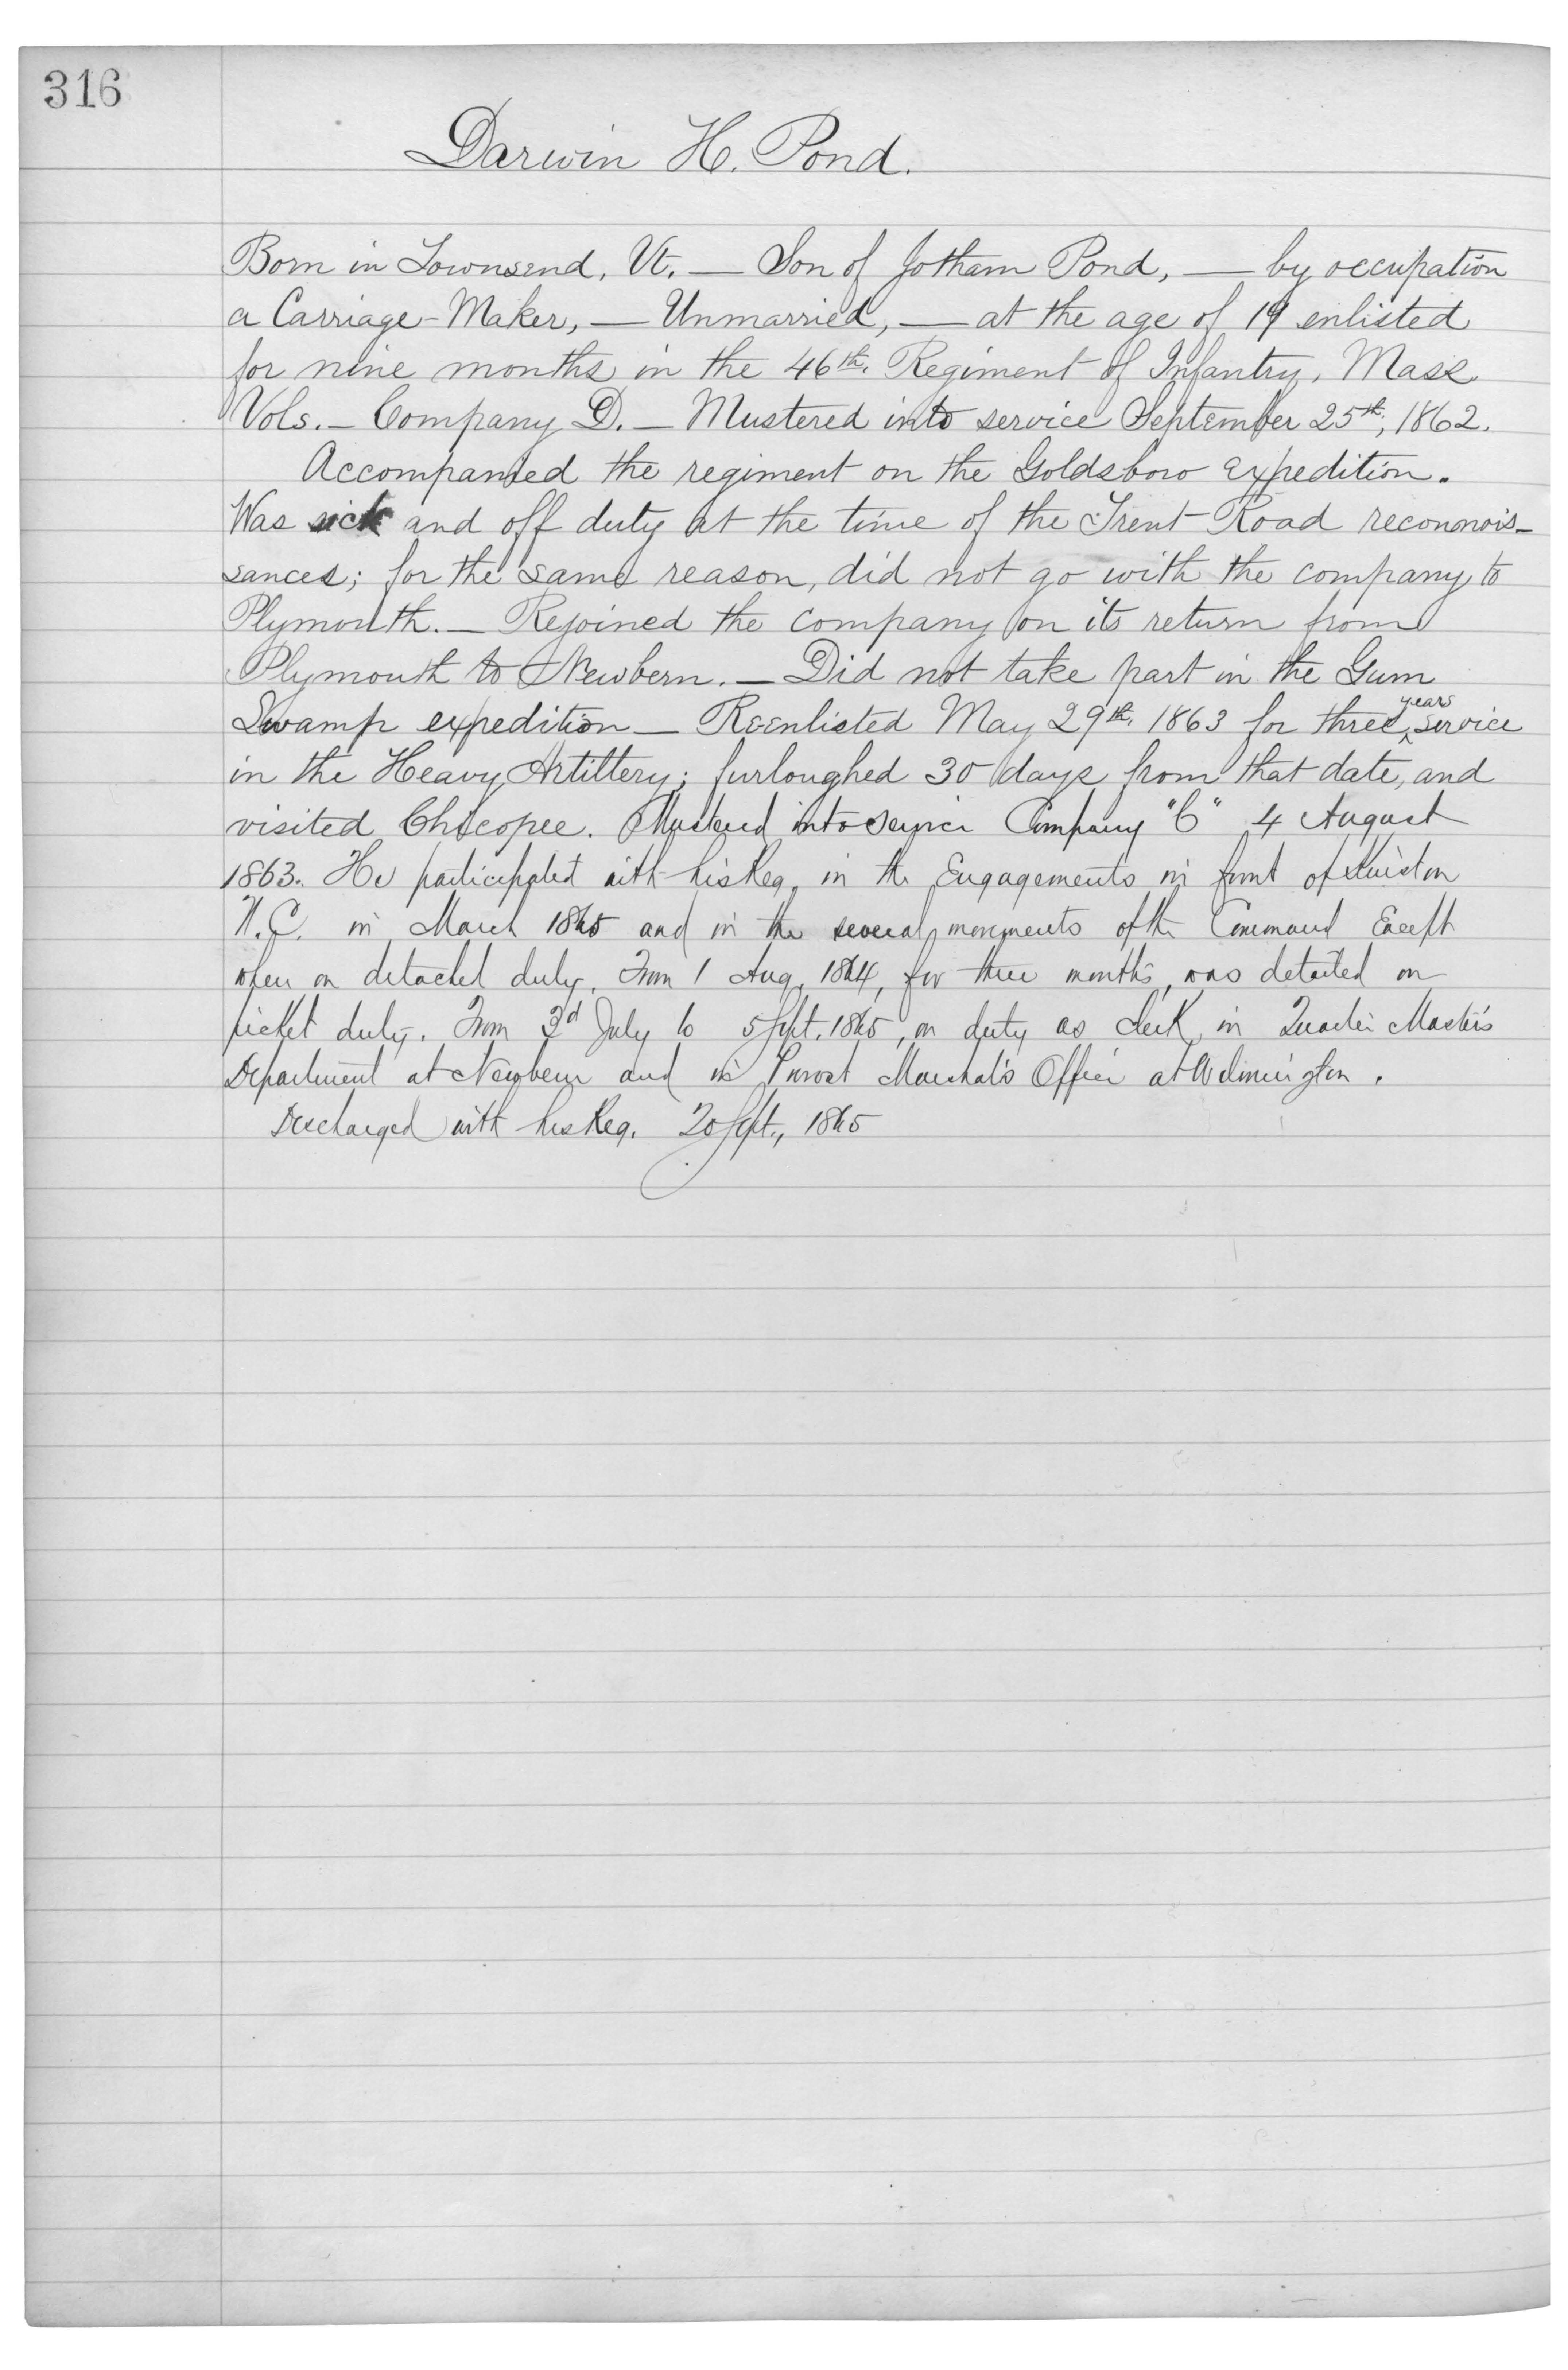 316
Darwin H. Pond.
Born in Townsend, Vt. — Son of Jotham Pond, — by occupation
a Carriage-Maker, — Unmarried, — at the age of 19 enlisted
for nine months in the 46th. Regiment of Infantry, Mass
Vols. — Company D. — Mustered into service September 25th, 1862.
Accompanied the regiment on the Goldsboro expedition.
Was sick and off duty at the time of the Trent Road reconnois-
sances; for the same reason, did not go with the company to
Plymouth. — Rejoined the company on its return from
Plymouth to Newbern. — Did not take part in the Gum
Swamp expedition — Reenlisted May 29th. 1863 for three years service
in the Heavy Artillery; furloughed 30 days from that date, and
visited Chicopee. Mustered into service Company "C" 4 August
1863. He participated with his Reg. in the Engagements in front of Kinston
N.C. in March 1865 and in the several movements of the Command Except
when on detached duty. From 1 Aug. 1864, for three months, was detailed on
picket duty. From 3d July to 5 Sept. 1865, on duty as clerk in Quarter Master's
Department at Newbern and in Provost Marshal's Office at Wilmington.
Discharged with his Reg. 20 Sept., 1865